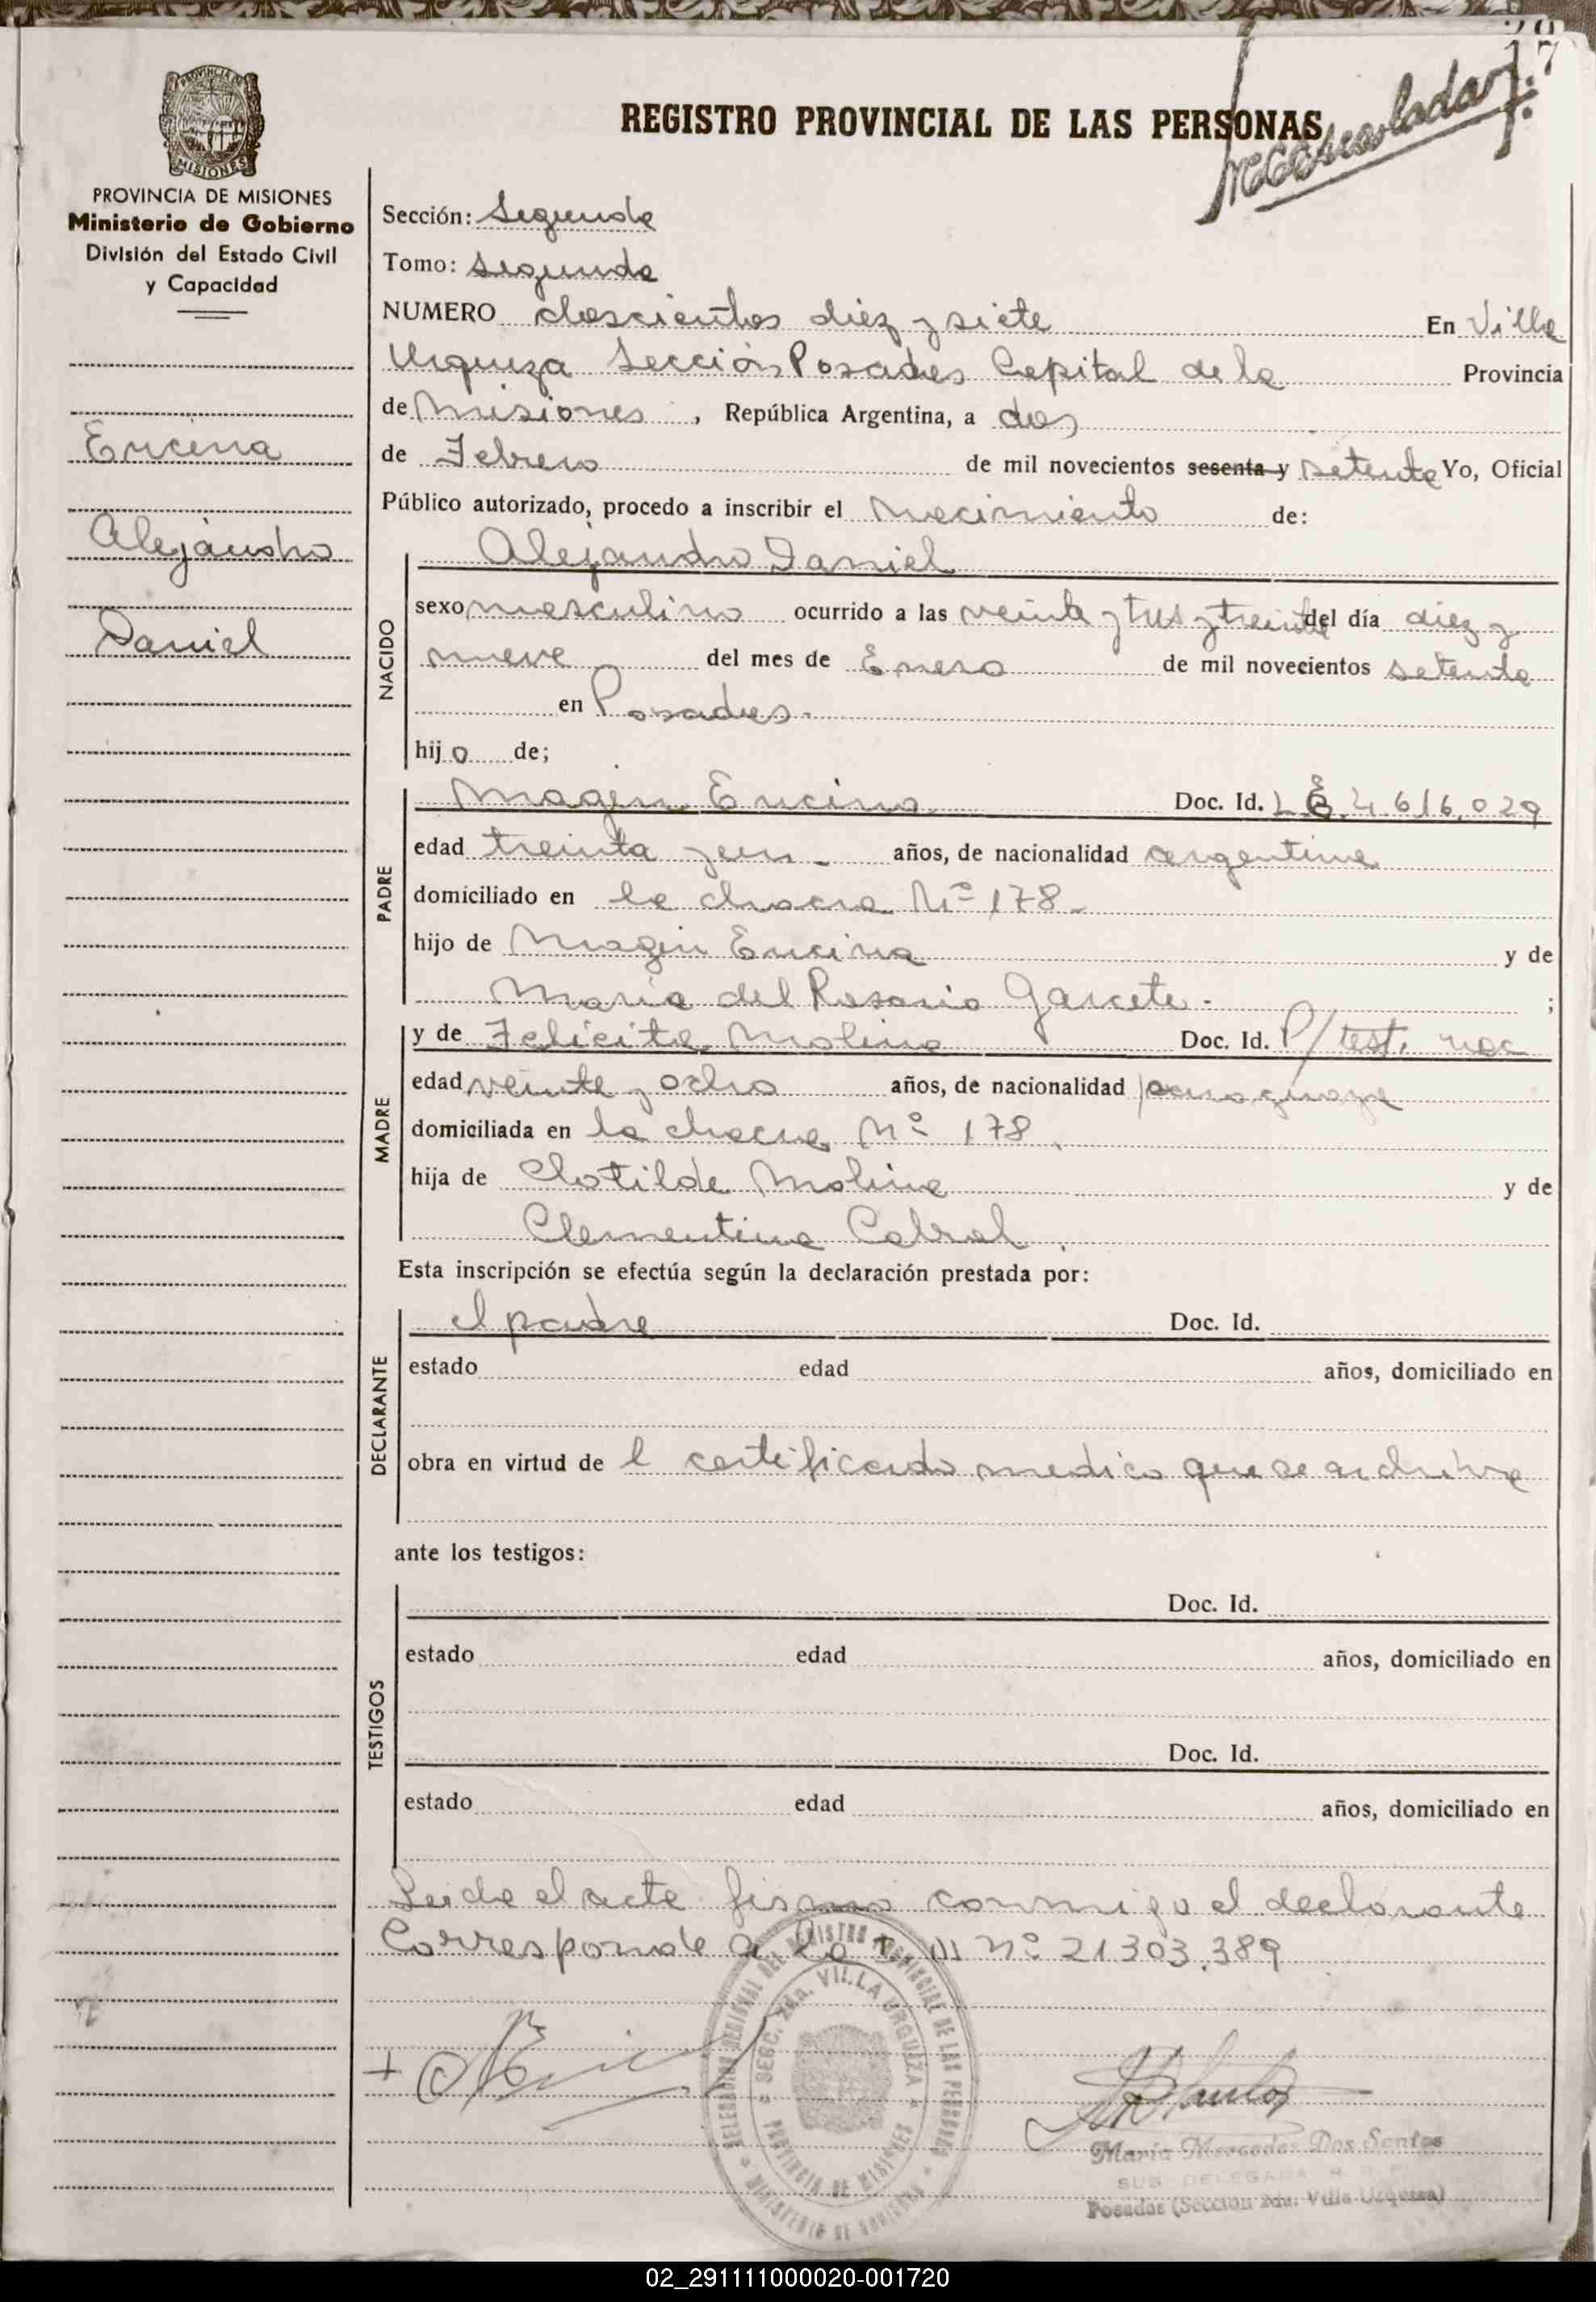 PROVINCIA DE
MISIONES
PROVINCIA DE MISIONES
Ministerio de Gobierno
División del Estado Civil
y Capacidad
Encina
Alejandro
Daniel
17
REGISTRO PROVINCIAL DE LAS PERSONAS
Sección: Segunda
Tomo: Segundo
NUMERO doscientos diez y siete En Villa
Urquiza Sección Posadas Capital de la Provincia
de Misiones, República Argentina, a dos
de Febrero de mil novecientos sesenta y setenta Yo, Oficial
Público autorizado, procedo a inscribir el nacimiento de:
Alejandro Daniel
NACIDO
sexo masculino ocurrido a las veinte y tres y treinta del día diez y
nueve del mes de Enero de mil novecientos setenta
en Posadas.
hijo de;
PADRE
Magin Encina Doc. Id. L.E. 4.616.029
edad treinta y un - años, de nacionalidad argentina
domiciliado en la chacra Nº 178-
hijo de Magin Encina y de
María del Rosario Garcete - ;
MADRE
y de Felicita Molina Doc. Id. P/ test. nac
edad veinte y ocho años, de nacionalidad paraguaya
domiciliada en la chacra Nº 178.
hija de Clotilde Molina y de
Clementina Cabral.
Esta inscripción se efectúa según la declaración prestada por:
DECLARANTE
el padre Doc. Id.
estado edad años, domiciliado en
obra en virtud de l certificado medico que se archiva
ante los testigos:
TESTIGOS
Doc. Id.
estado edad años, domiciliado en
Doc. Id.
estado edad años, domiciliado en
Leida el acta firma conmigo el declarante
Corresponde a la M Nº 21303.389
DELEGACION REGIONAL DEL REGISTRO PROVINCIAL DE LAS PERSONAS
MINISTERIO DE GOBIERNO
SECC. 2da. VILLA URQUIZA
PROVINCIA DE MISIONES
María Mercedes Dos Santos
SUB DELEGADA R. P. P.
Posadas (Sección 2da. Villa Urquiza)
02_291111000020-001720